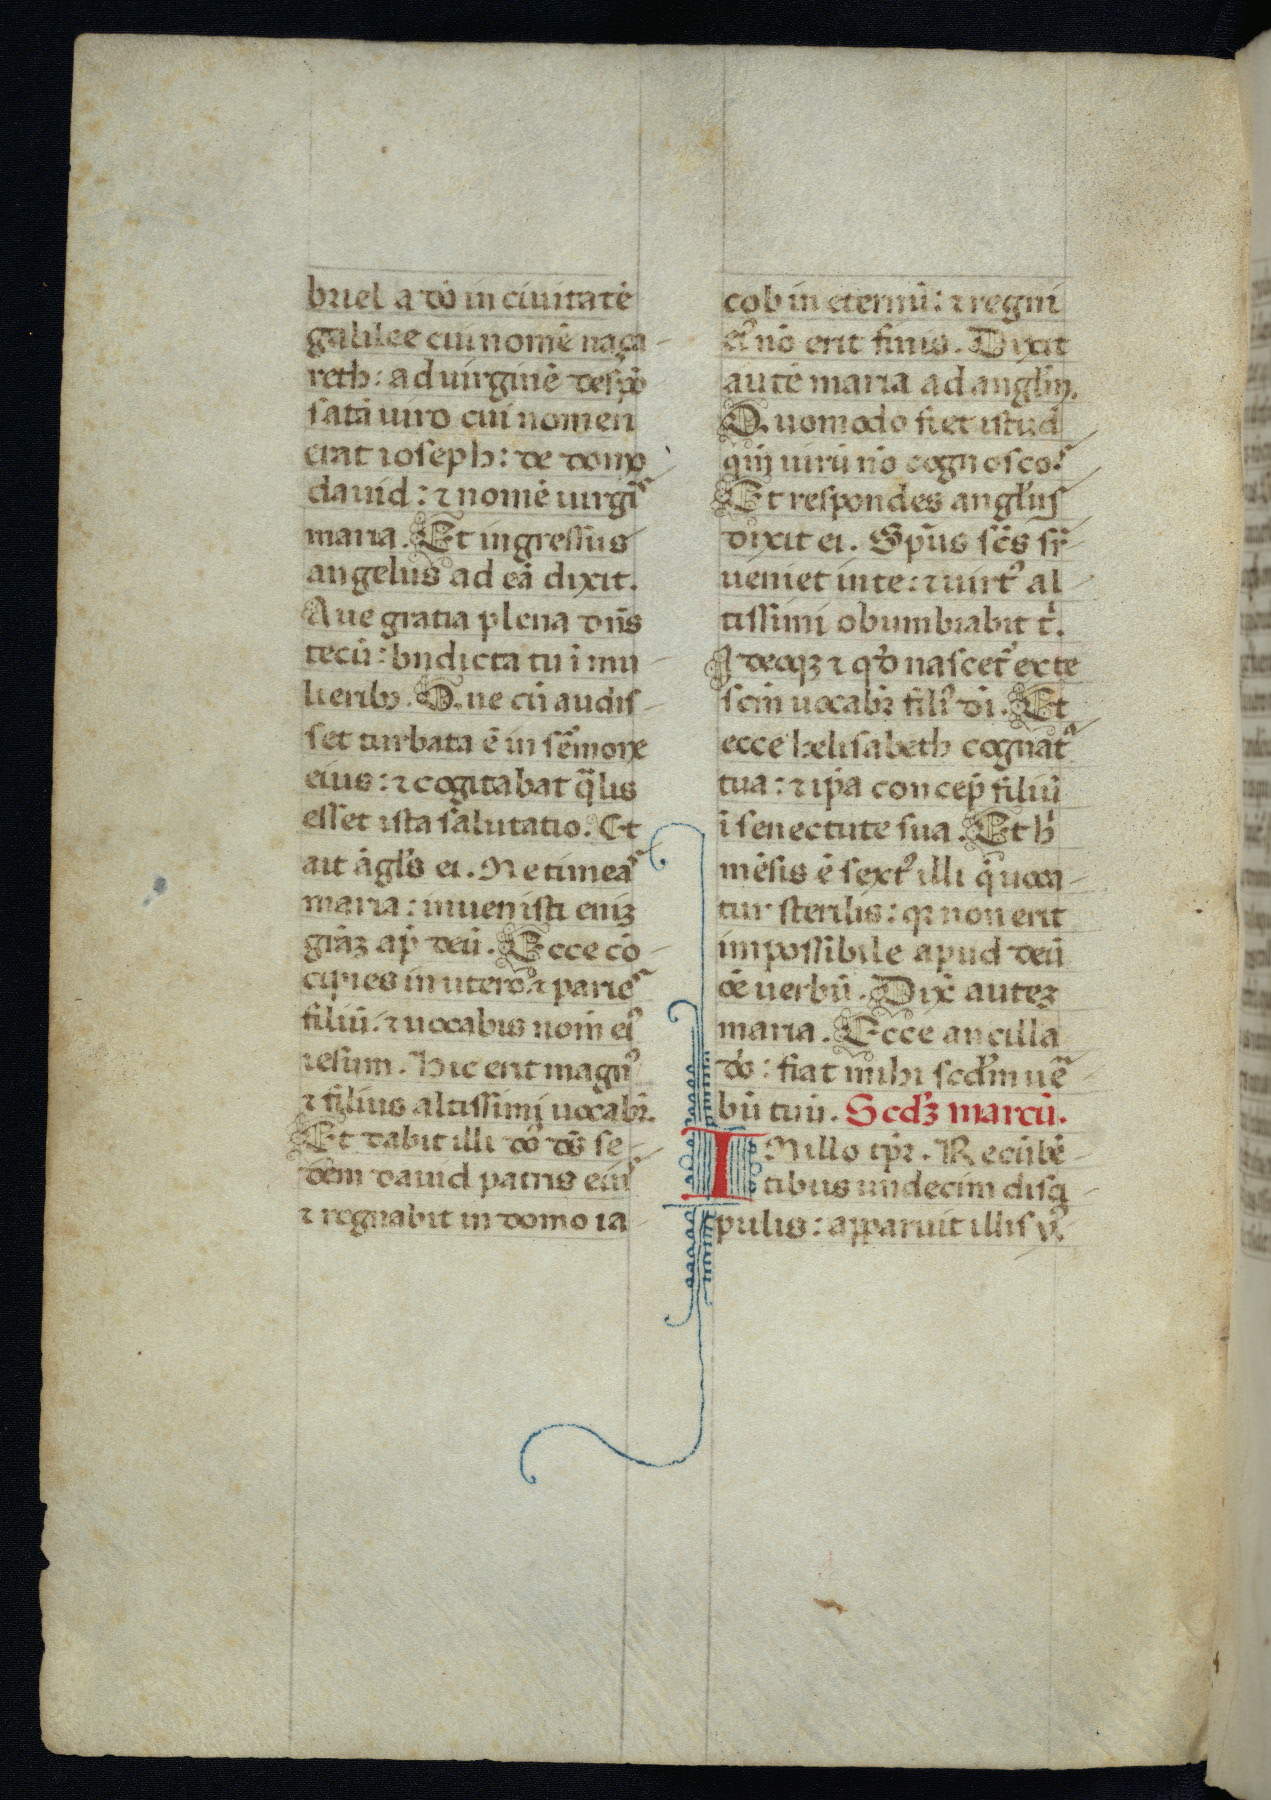 briel a dō in ciuitatē
galilee cui nomē naça
reth: ad uirginē despō
satā uiro cui nomen
erat ioseph: de domo
dauid: ⁊ nomē uirgīs
maria. Et ingressus
angelus ad eā dixit.
Aue gratia plena dn̄s
tecū: bn̄dicta tu ī mu
lieribꝫ. Que cū audis
set turbata ē in sermone
eius: ⁊ cogitabat qͣlis
esset ista salutatio. Et
ait āgl̄s ei. Ne timeas
maria: inuenisti eniꝫ
grāꝫ ap̄ deū. Ecce cō
cipies in utero ⁊ paries
filiū. ⁊ uocabis nom̄ ei᾽
iesum. Hic erit magn᾽
⁊ filius altissimi uocabꝛ̄.
Et dabit illi dō ds̄ se
dem dauid patris eius
⁊ regnabit in domo ia
cob in eternū: ⁊ regni
ei᾽ nō erit finis. Dixit
autē maria ad angl̄m.
Quomodo fiet istud
qm̄ uirū nō cognosco?
Et respondēs angl̄us
dixit ei. Spūs scs̄ sr̄
ueniet in te: ⁊ uirt᾽ al
tissimi obumbrabit t̄.
Ideoqꝫ ⁊ qd̄ nascet᾽ ex te
scm̄ uocabꝛ̄ fili᾽ dī. Et
ecce helisabeth cognata
tua: ⁊ ip̄a concep̄ filiū
ī senectute sua. Et h̄
mēsis ē sext᾽ illi q̄ uoca
tur sterilis: qꝛ non erit
impossibile apud deū
oē uerbū. Dix̄ auteꝫ
maria. Ecce ancilla
dō: fiat mihi scd̄m ue
bū tuū. Scd̄ꝫ marcū.
IN illo tp̄ꝛ. Recūbē
tibus undecim disci
pulis: apparuit illis yͨ.